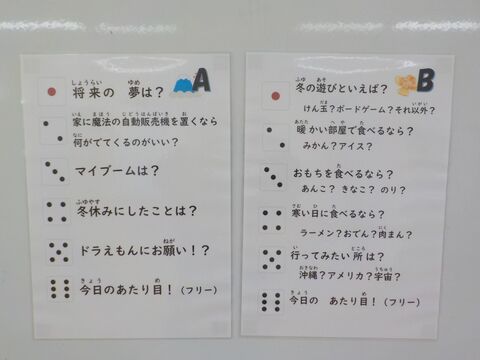 A
将来の 夢は?
しょうらい ゆめ
家に魔法の自動販売機を置くなら
いえ まほう じどうはんばいき お
何がでてくるのがいい?
なに
マイブームは?
冬休みにしたことは?
ふゆやす
ドラえもんにお願い!?
ねが
今日のあたり目!(フリー)
きょう め
B
冬の遊びといえば?
ふゆ あそ
けん玉?ボードゲーム?それ以外?
だま いがい
暖かい部屋で食べるなら?
あたた へや た
みかん?アイス?
おもちを食べるなら?
た
あんこ? きなこ? のり?
寒い日に食べるなら?
さむ ひ た
ラーメン?おでん?肉まん?
にく
行ってみたい所は?
い ところ
沖縄?アメリカ?宇宙?
おきなわ うちゅう
今日の あたり目!(フリー)
きょう め